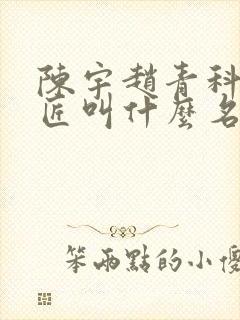 陳宇趙青科
匠叫什麼名
笨兩點的小傻